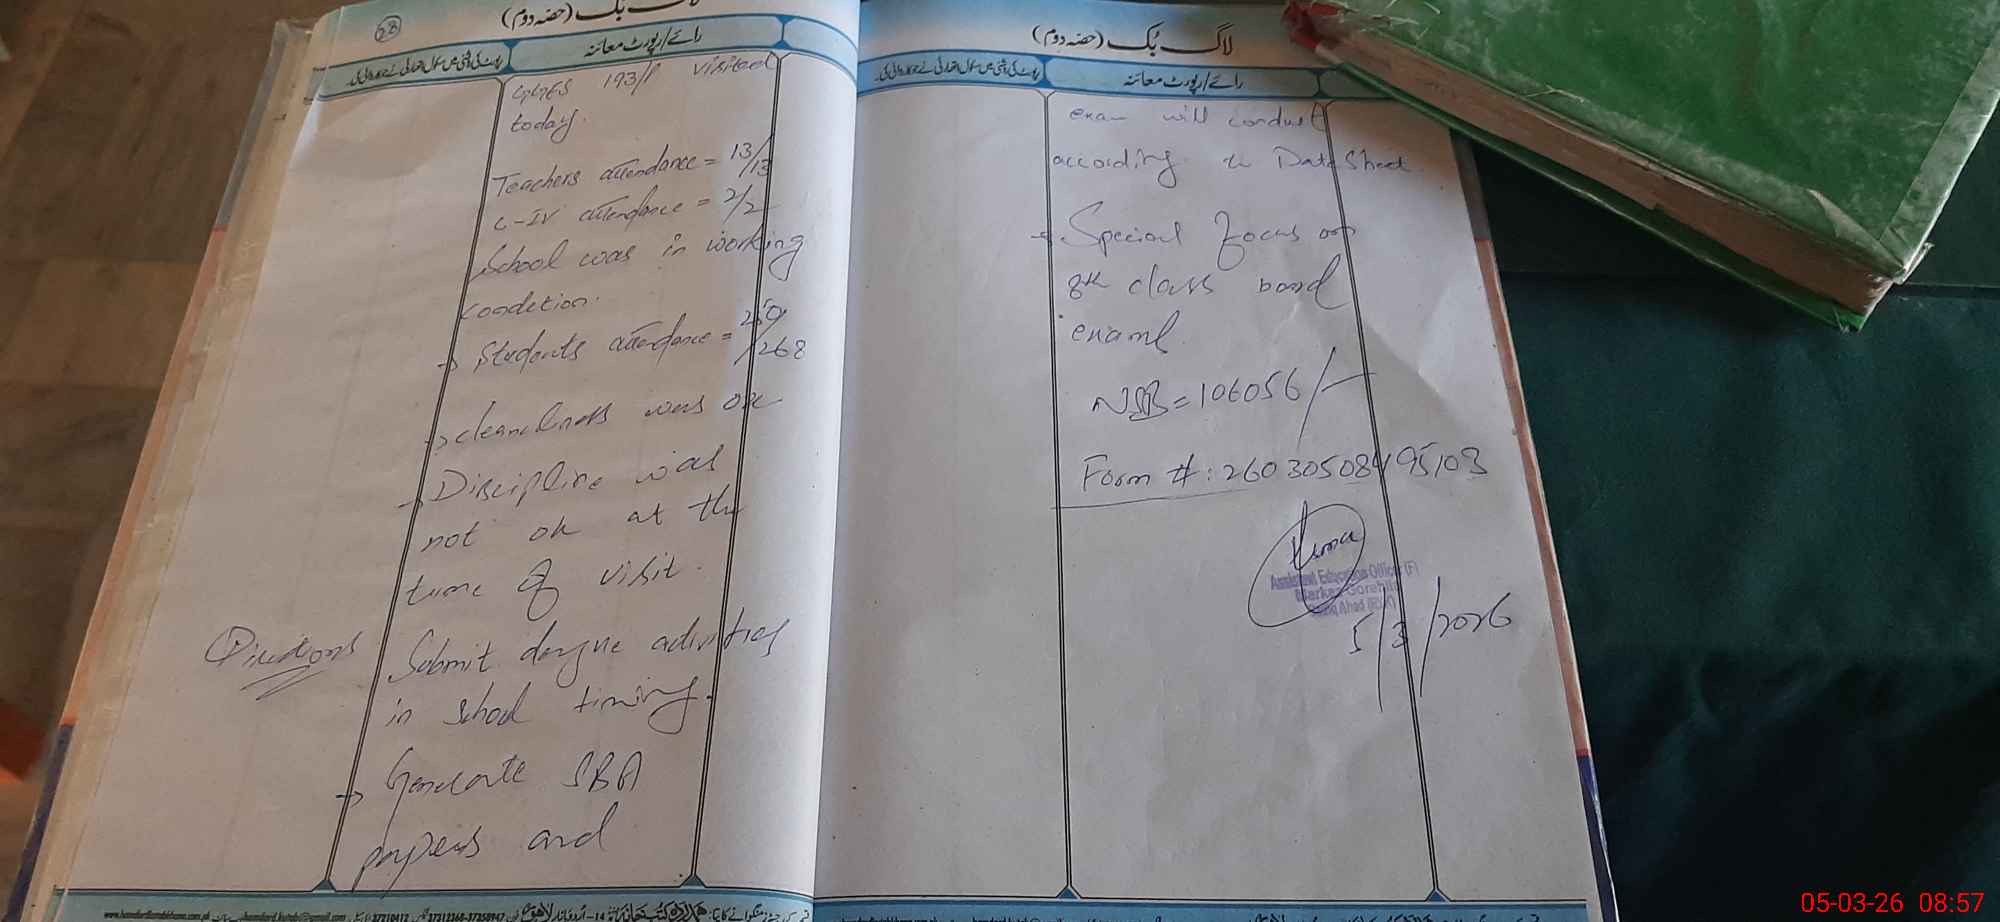 58
لاگ بُک (حصّہ دوم)
رائے/رپورٹ معائنہ
GGES 193/P visited
today.
Teachers attendance = 13/13
C-IV attendance = 2/2
School was in working
condition.
→ Students attendance =
/268
→ cleanliness was ok
→ Discipline was
not ok at the
time of visit.
Directions
Submit dengue activities
in school timing.
→ Generate SBA
papers and
لاگ بُک (حصّہ دوم)
رائے/رپورٹ معائنہ
exam will conduct
according to DateSheet.
→ Special focus on
8th class board
exams.
NSB = 106056/-
Form #: 26030508495103
Assistant Education Officer (F)
Markaz
5/3/2026
05-03-26 08:57